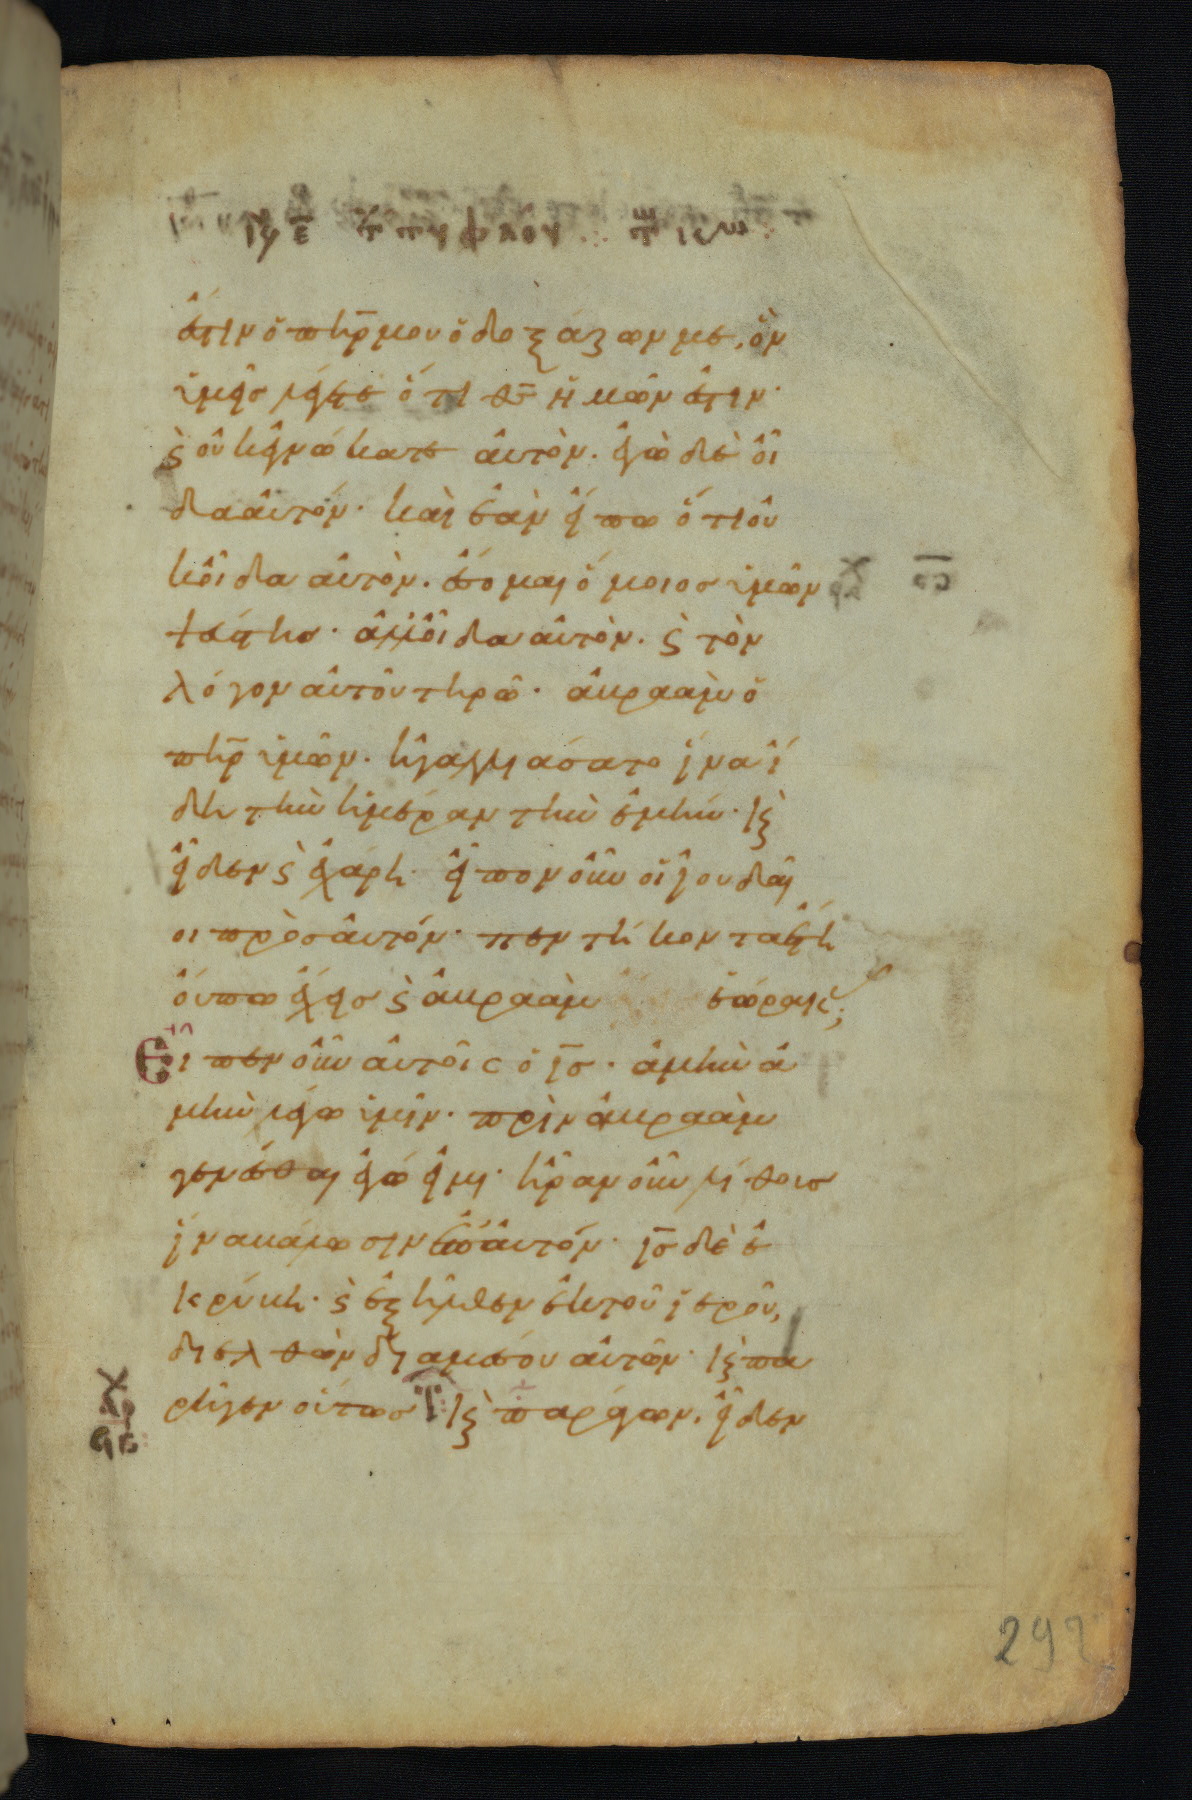 κυ ε τ τυφλου τ
ἐστιν ὁ πηρ μου ὁ δοξάζων με, ὃν
ὑμεῖς λέγετε ὅτι θς ἡμῶν ἐστιν·
ϛ οὐκ ἐγνώκατε αὐτόν. ἐγὼ δὲ οἶ
δα αὐτόν· καὶ ἐὰν εἴπω ὅτι οὐ
κ οἶδα αὐτὸν. ἔσομαι ὅμοιος ὑμῶν
ψεύστης· ἀλλ οἶδα αὐτὸν. ϛ τὸν
λόγον αὐτοῦ τηρῶ· ἀβραὰμ ὁ
πηρ ὑμῶν. ἠγαλλιάσατο ἵνα ἴ
δη τὴν ἡμέραν τὴν ἐμήν· κϛ
εἶδεν ϛ ἐχάρη· εἶπον οὖν οἱ ἰουδαῖ
οι πρὸς αὐτόν· πεντήκοντα ἔτη
οὔπω ἔχεις ϛ ἀβραὰμ ἑώρακας;
Εἶπεν οὖν αὐτοῖς ὁ ις· ἀμὴν ἀ
μὴν λέγω ὑμῖν· πρὶν ἀβραὰμ
γενέσθαι ἐγώ εἰμι· ἦραν οὖν λίθους
ἵνα βάλωσιν ἐπ αὐτόν· ις δὲ ἐ
κρύβη· ϛ ἐξῆλθεν ἐκ τοῦ ἱεροῦ,
διελθὼν διὰ μέσου αὐτῶν· κϛ πα
ρῆγεν οὕτως κϛ παράγων. εἶδεν
292